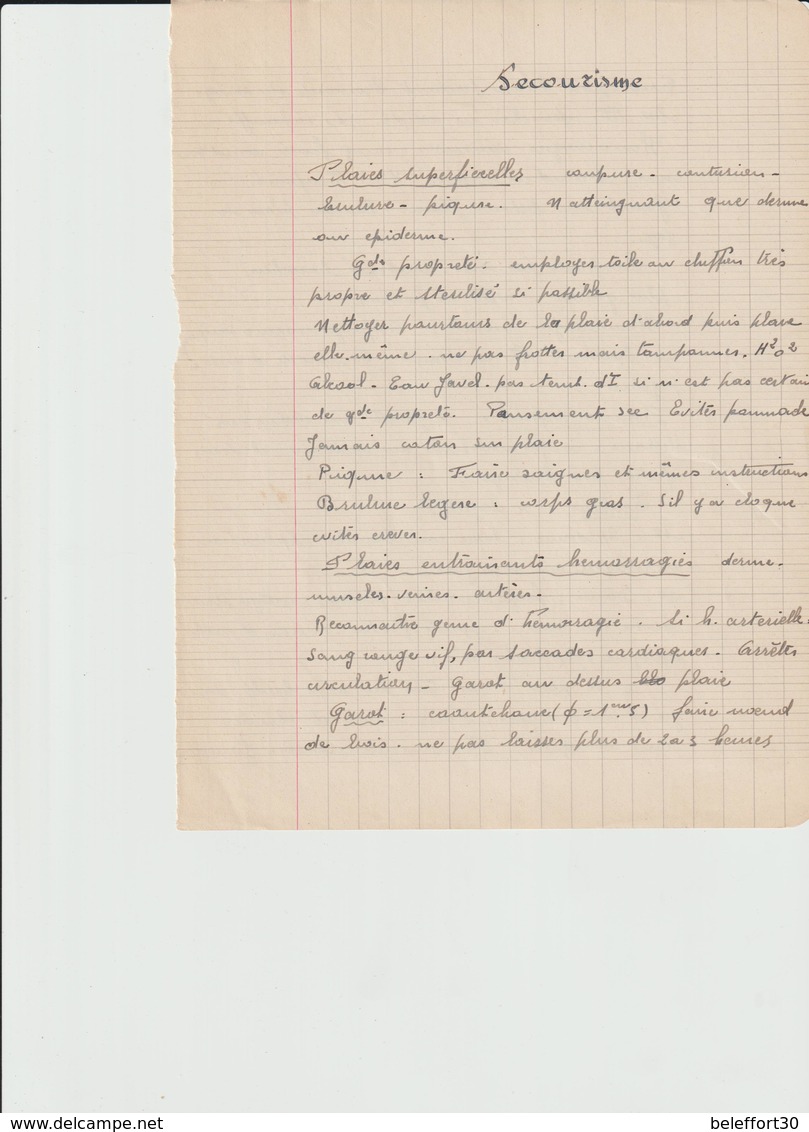 Secourisme
Plaies superficielles coupure - contusion -
brulure - piqure. N atteingnant que derme
ou epiderme.
Gde propreté. employer toile ou chiffon très
propre et sterilisé si possible
Nettoyer pourtours de la plaie d'abord puis plaie
elle-même. ne pas frotter mais tamponner. H2O2
Alcool - Eau Javel. pas teint. d'I si n'est pas certain
de gde propreté. Pansement sec Eviter pommade
Jamais coton sur plaie
Piqure : Faire saigner et mêmes instructions
Brulure legere : corps gras. S'il y a cloque
eviter crever.
Plaies entrainants hemorragies derme -
muscles - veines - artères -
Reconnaitre genre d'hemorragie. Si h. arterielle :
sang rouge vif, par saccades cardiaques - Arrêter
circulation - Garot au dessus plaie
Garot : caoutchouc (φ = 1cm.5) faire noeud
de bois. ne pas laisser plus de 2 a 3 heures
beleffort30